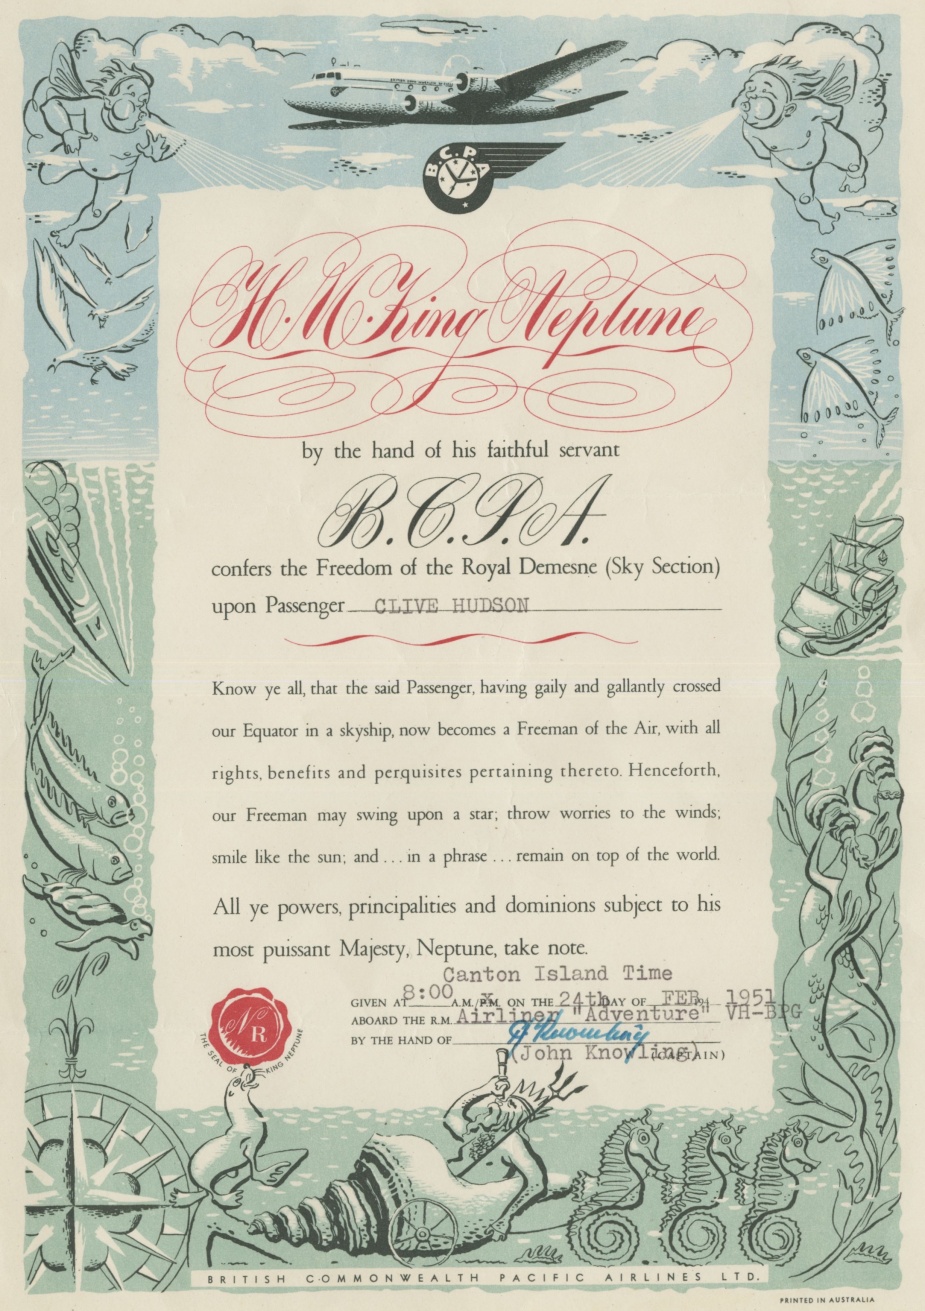 B.C.P.A.
H.M. King Neptune
by the hand of his faithful servant
B.C.P.A.
confers the Freedom of the Royal Demesne (Sky Section)
upon Passenger CLIVE HUDSON
Know ye all, that the said Passenger, having gaily and gallantly crossed
our Equator in a skyship, now becomes a Freeman of the Air, with all
rights, benefits and perquisites pertaining thereto. Henceforth,
our Freeman may swing upon a star; throw worries to the winds;
smile like the sun; and ... in a phrase ... remain on top of the world.
All ye powers, principalities and dominions subject to his
most puissant Majesty, Neptune, take note.
Canton Island Time
GIVEN AT 8:00 A.M./P.M. ON THE 24th DAY OF FEB, 1951
ABOARD THE R.M. Airliner "Adventure" VH-BPG
BY THE HAND OF J Knowling
(John Knowling) (CAPTAIN)
NR
THE SEAL OF KING NEPTUNE
N
BRITISH COMMONWEALTH PACIFIC AIRLINES LTD.
PRINTED IN AUSTRALIA